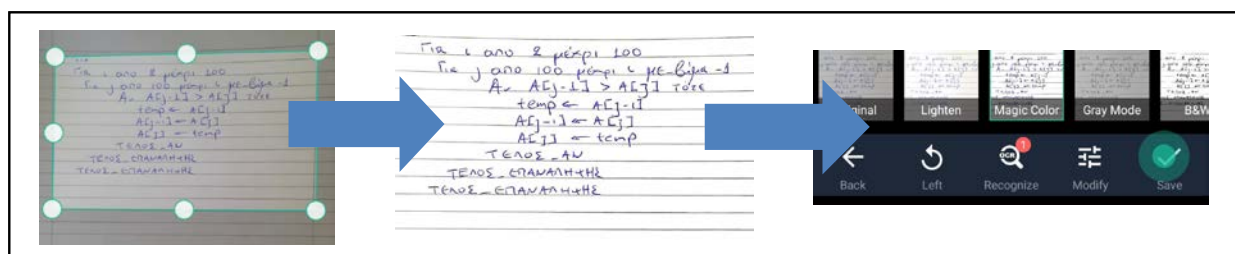 Για
Για ι απο 2 μέχρι 100
Για j απο 100 μέχρι ι με-βήμα -1
Αν A[j-1] > A[j] τότε
temp ← A[j-1]
A[j-1] ← A[j]
A[j] ← temp
ΤΕΛΟΣ_ΑΝ
ΤΕΛΟΣ_ΕΠΑΝΑΛΗΨΗΣ
ΤΕΛΟΣ_ΕΠΑΝΑΛΗΨΗΣ
Για ι απο 2 μέχρι 100
Για j απο 100 μέχρι ι με-βήμα -1
Αν A[j-1] > A[j] τότε
temp ← A[j-1]
A[j-1] ← A[j]
A[j] ← temp
ΤΕΛΟΣ_ΑΝ
ΤΕΛΟΣ_ΕΠΑΝΑΛΗΨΗΣ
ΤΕΛΟΣ_ΕΠΑΝΑΛΗΨΗΣ
ginal Lighten Magic Color Gray Mode B&W
OCR 1
Back Left Recognize Modify Save